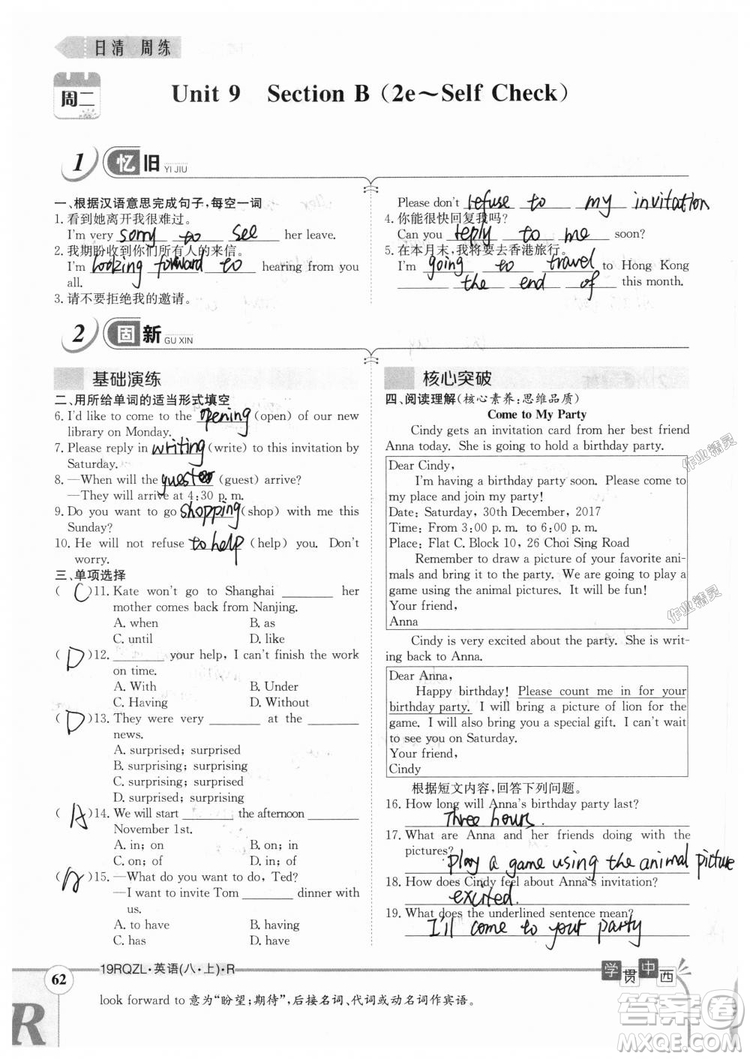 日清 周练
周二
Unit 9 Section B (2e～Self Check)
1 忆旧 YI JIU
一、根据汉语意思完成句子,每空一词
1. 看到她离开我很难过。
I'm very sorry to see her leave.
2. 我期盼收到你们所有人的来信。
I'm looking forward to hearing from you
all.
3. 请不要拒绝我的邀请。
Please don't refuse to my invitation
4. 你能很快回复我吗?
Can you reply to me soon?
5. 在本月末,我将要去香港旅行。
I'm going to travel to Hong Kong
the end of this month.
2 固新 GU XIN
基础演练
二、用所给单词的适当形式填空
6. I'd like to come to the opening (open) of our new
library on Monday.
7. Please reply in writing (write) to this invitation by
Saturday.
8. —When will the (guest) arrive?
—They will arrive at 4:30 p. m.
9. Do you want to go shopping (shop) with me this
Sunday?
10. He will not refuse to help (help) you. Don't
worry.
三、单项选择
( C )11. Kate won't go to Shanghai ______ her
mother comes back from Nanjing.
A. when B. as
C. until D. like
( D )12. ______ your help, I can't finish the work
on time.
A. With B. Under
C. Having D. Without
( D )13. They were very ______ at the ______
news.
A. surprised; surprised
B. surprising; surprising
C. surprising; surprised
D. surprised; surprising
( A )14. We will start ______ the afternoon ______
November 1st.
A. in; on B. on; on
C. on; of D. in; of
( A )15. —What do you want to do, Ted?
—I want to invite Tom ______ dinner with
us.
A. to have B. having
C. has D. have
核心突破
四、阅读理解(核心素养:思维品质)
Come to My Party
Cindy gets an invitation card from her best friend
Anna today. She is going to hold a birthday party.
Dear Cindy,
I'm having a birthday party soon. Please come
and join my party!
Date: Saturday, 30th December, 2017
Time: From 3:00 p. m. to 6:00 p. m.
Place: Flat C. Block 10, 26 Choi Sing Road
Remember to draw a picture of your favorite ani-
mals and bring to the party. We are going to play a
game using the animal pictures.
Your friend,
Anna
Cindy is very excited about the party. She is writ-
ing back to Anna.
Dear Anna,
Happy birthday! Please count me in for your
birthday party. I will draw a picture of lion for the
game. I will also bring you a special gift. I can't wait
to see you on Saturday.
Your friend,
Cindy
根据短文内容,回答下列问题。
16. How long will Anna's birthday party last?
Three hours.
17. What are Anna and her friends doing with the
pictures?
play a game using the animal picture
18. How does Cindy feel about Anna's invitation?
excited.
19. What does the underlined sentence mean?
I'll come to your party
62
19RQZL·英语(八·上)·R
学贯中西
look forward to 意为“盼望;期待”,后接名词、代词或动名词作宾语。
R
作业精灵
作业精灵
答案圈
MXQE.COM